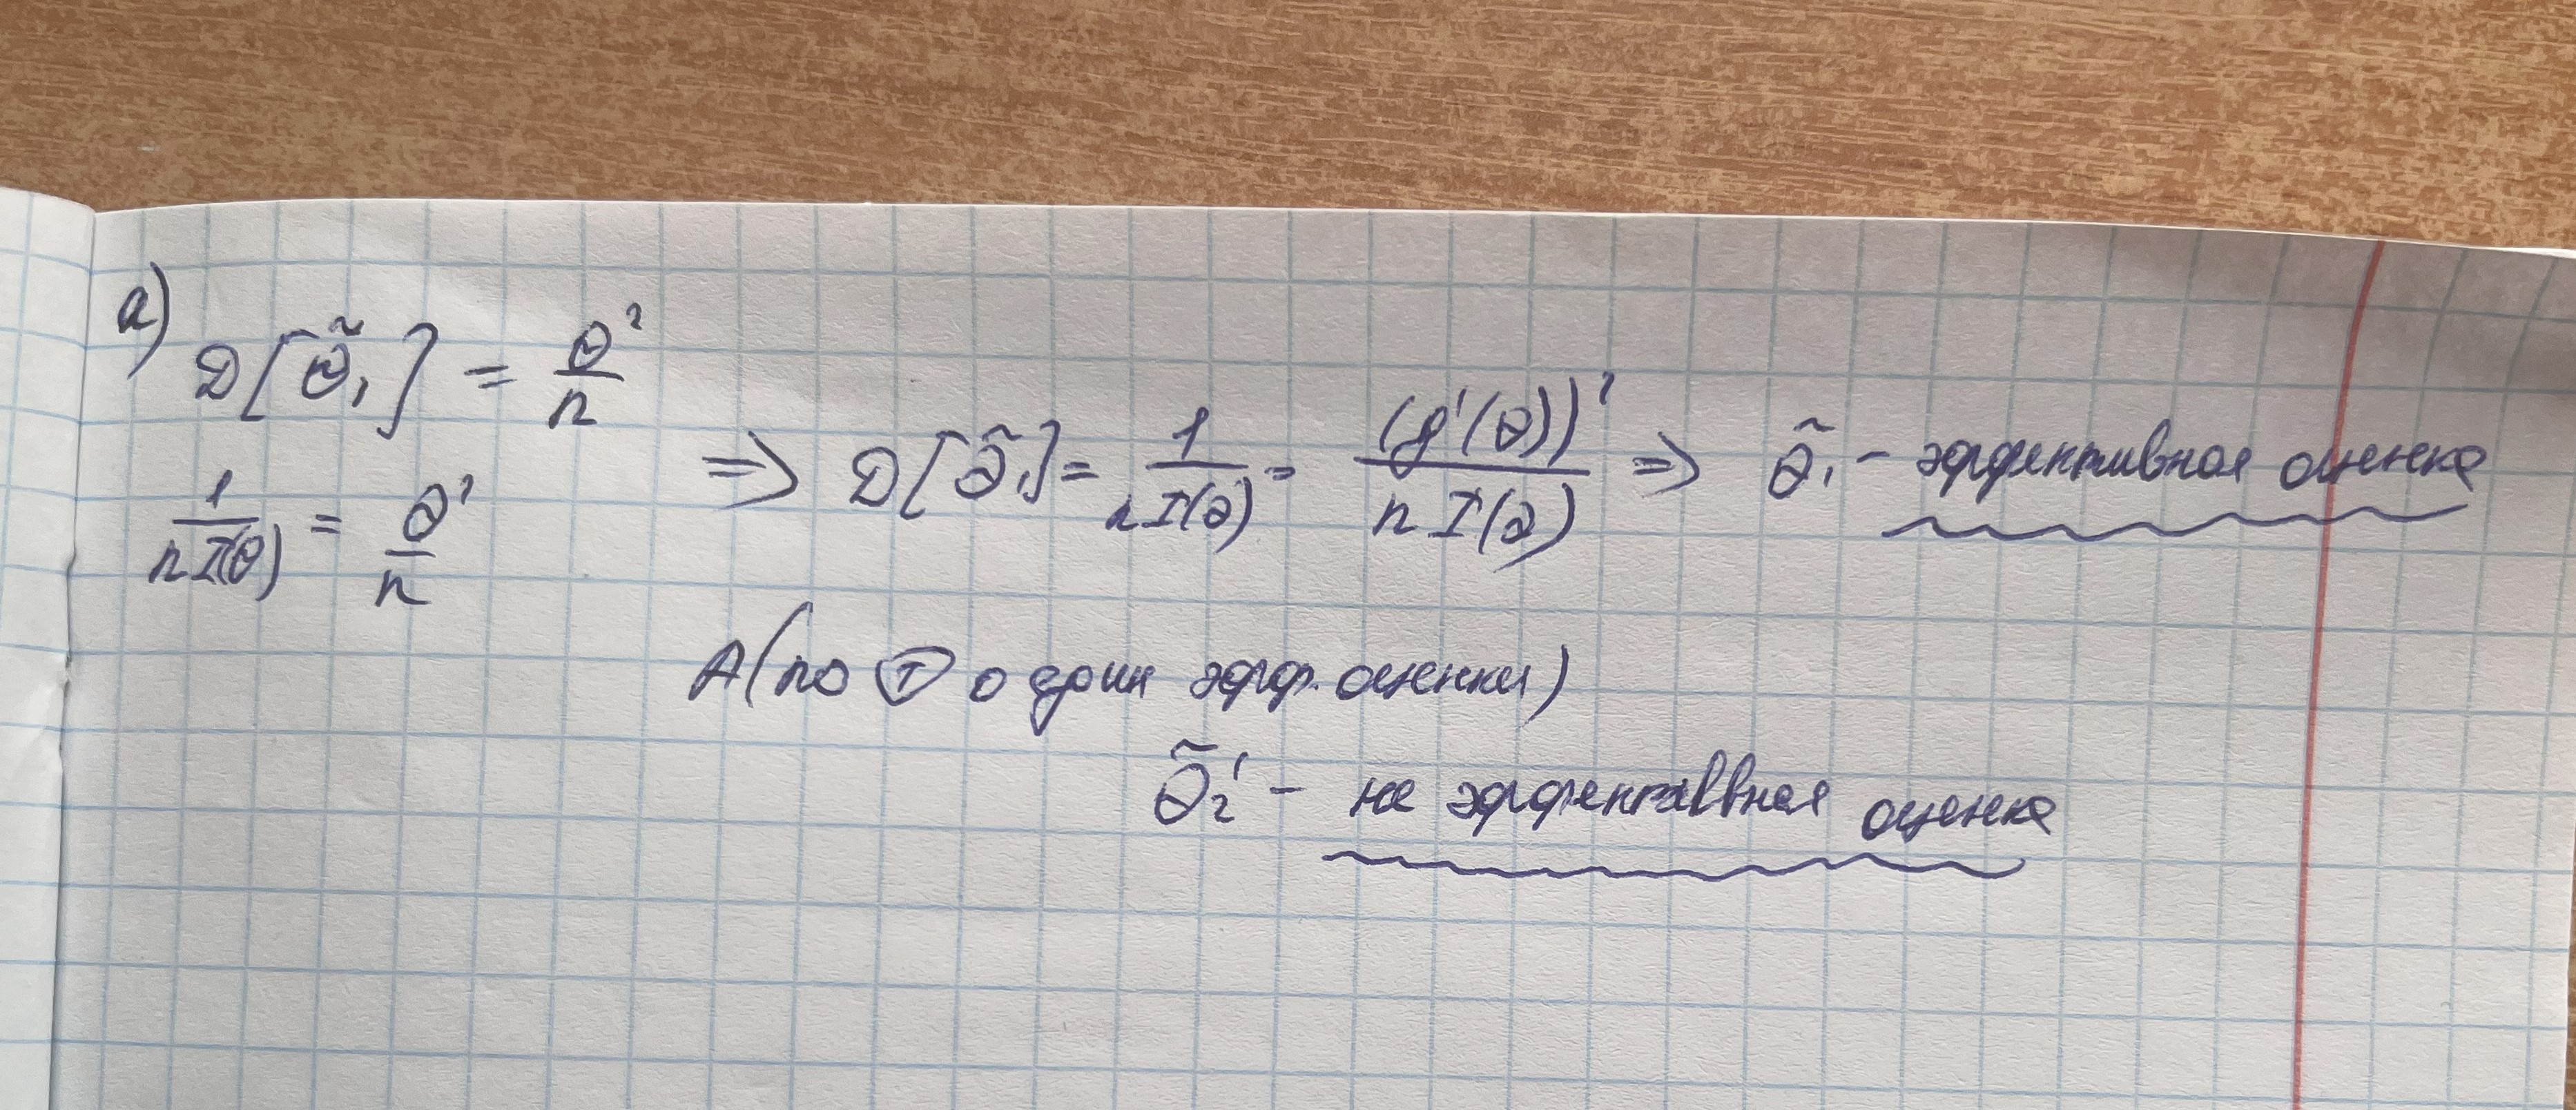 а)
D[θ̃₁] = θ²/n
1/(nI(θ)) = θ²/n
⇒ D[θ̃₁] = 1/(nI(θ)) = (g'(θ))²/(nI(θ)) ⇒ θ̃₁ - эффективная оценка
А (по Ⓣ о един эфф. оценки)
θ̃₂' - не эффективная оценка